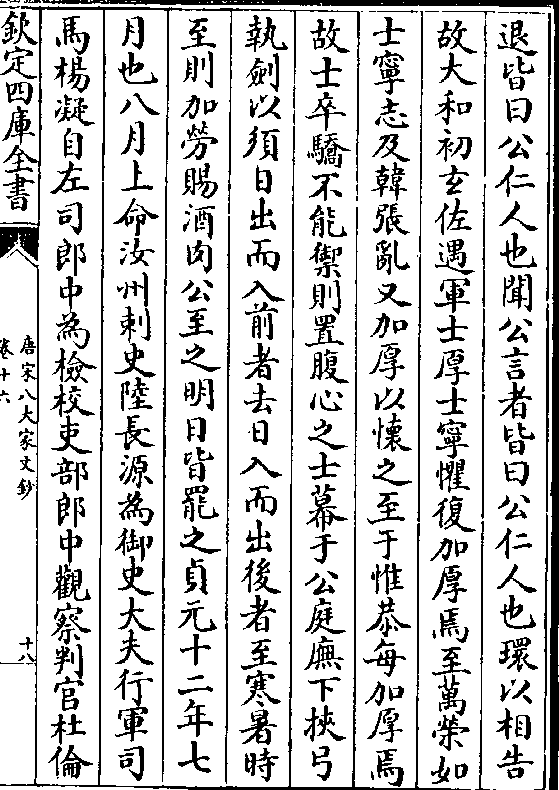 退皆曰公仁人也聞公言者皆曰公仁人也環以相告
故大和初玄佐遇軍士厚士寧懼復加厚焉至萬榮如
士寧志及韓張亂又加厚以懷之至于惟恭每加厚焉
故士卒驕不能禦則置腹心之士幕于公庭廡下挾弓
執劍以須日出而入前者去日入而出後者至寒暑時
至則加勞賜酒肉公至之明日皆罷之貞元十二年七
月也八月上命汝州刺史陸長源為御史大夫行軍司
馬楊凝自左司郎中為檢校吏部郎中觀察判官杜倫
欽定四庫全書
唐宋八大家文鈔
卷十六
十八